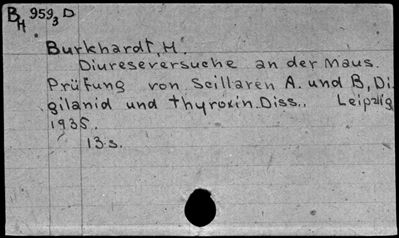 BH 959,3 D
Burkhardt, H.
Diureseversuche an der Maus.
Prüfung von Scillaren A. und B, Di.
gilanid und thyroxin. Diss.. Leipzig
1935.
13.s.